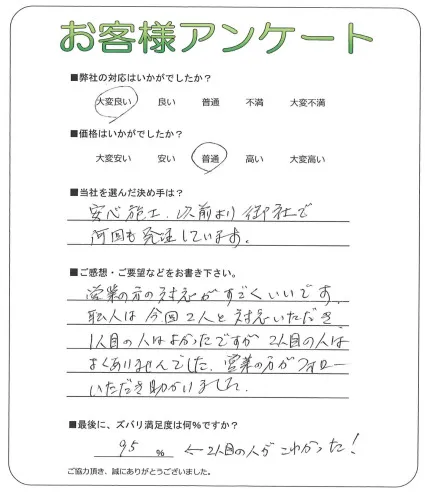 お客様アンケート
■弊社の対応はいかがでしたか?
大変良い 良い 普通 不満 大変不満
■価格はいかがでしたか?
大変安い 安い 普通 高い 大変高い
■当社を選んだ決め手は?
安心施工、以前より御社で
何回も発注しています。
■ご感想・ご要望などをお書き下さい。
営業の方の対応がすごくいいです。
職人は今回2人と対応いただき
1人目の人はよかったですが2人目の人は
よくありませんでした。営業の方がフォロー
いただき助かりました。
■最後に、ズバリ満足度は何%ですか?
95 % ←2人目の人がこわかった!
ご協力頂き、誠にありがとうございました。